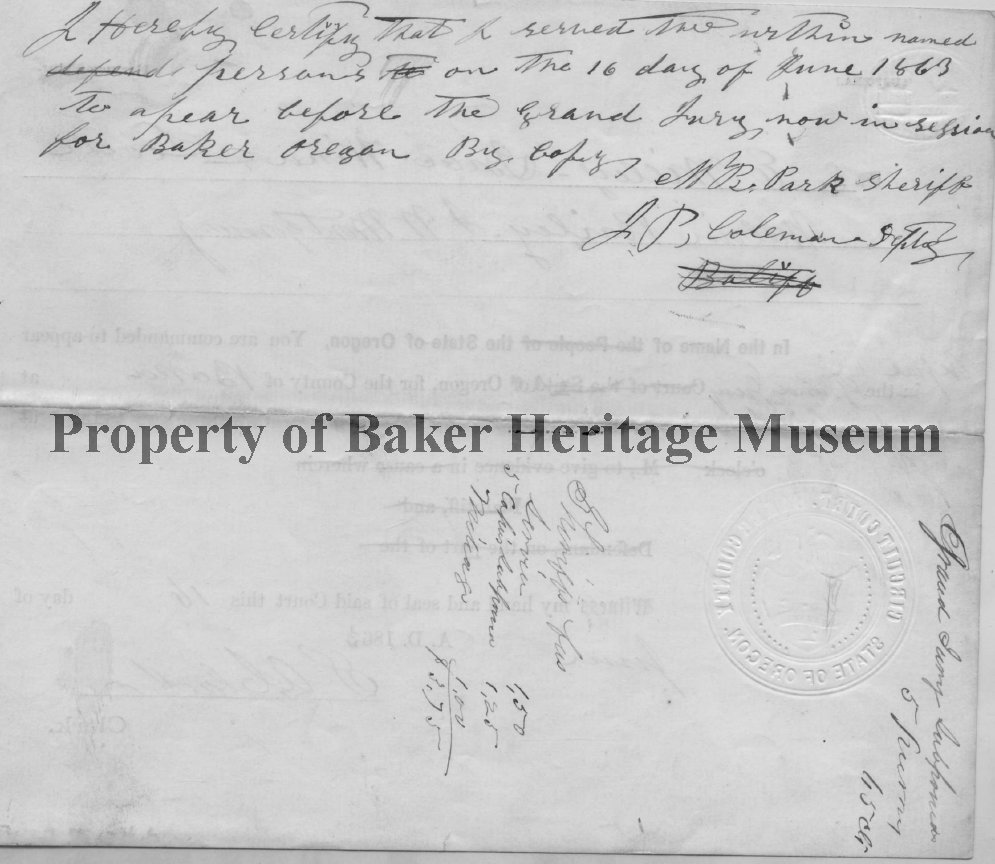 I Hereby Certify that I served the within named
defend persons to on the 16 day of June 1863
to apear before the Grand Jury now in session
for Baker oregon By Copy
Park Sheriff
J. P. Coleman Dpty
Baliff
In the Name of the People of the State of Oregon, You are commanded to appear
in the Court of the of Oregon, for the County of Baker at
Property of Baker Heritage Museum
o'clock M., to give evidence in a cause wherein
Plaintiff, and
Defendant, on the part of the
Witness my hand and seal of said Court this 16 day of
June A. D. 1863
Clerk.
CIRCUIT COURT, BAKER COUNTY,
STATE OF OREGON.
Sheriffs Fees
Servin 1,50
5 Copies Subpoenas 1,25
Mileage 1,00
$3,75
Grand Jury Subpoenas
5